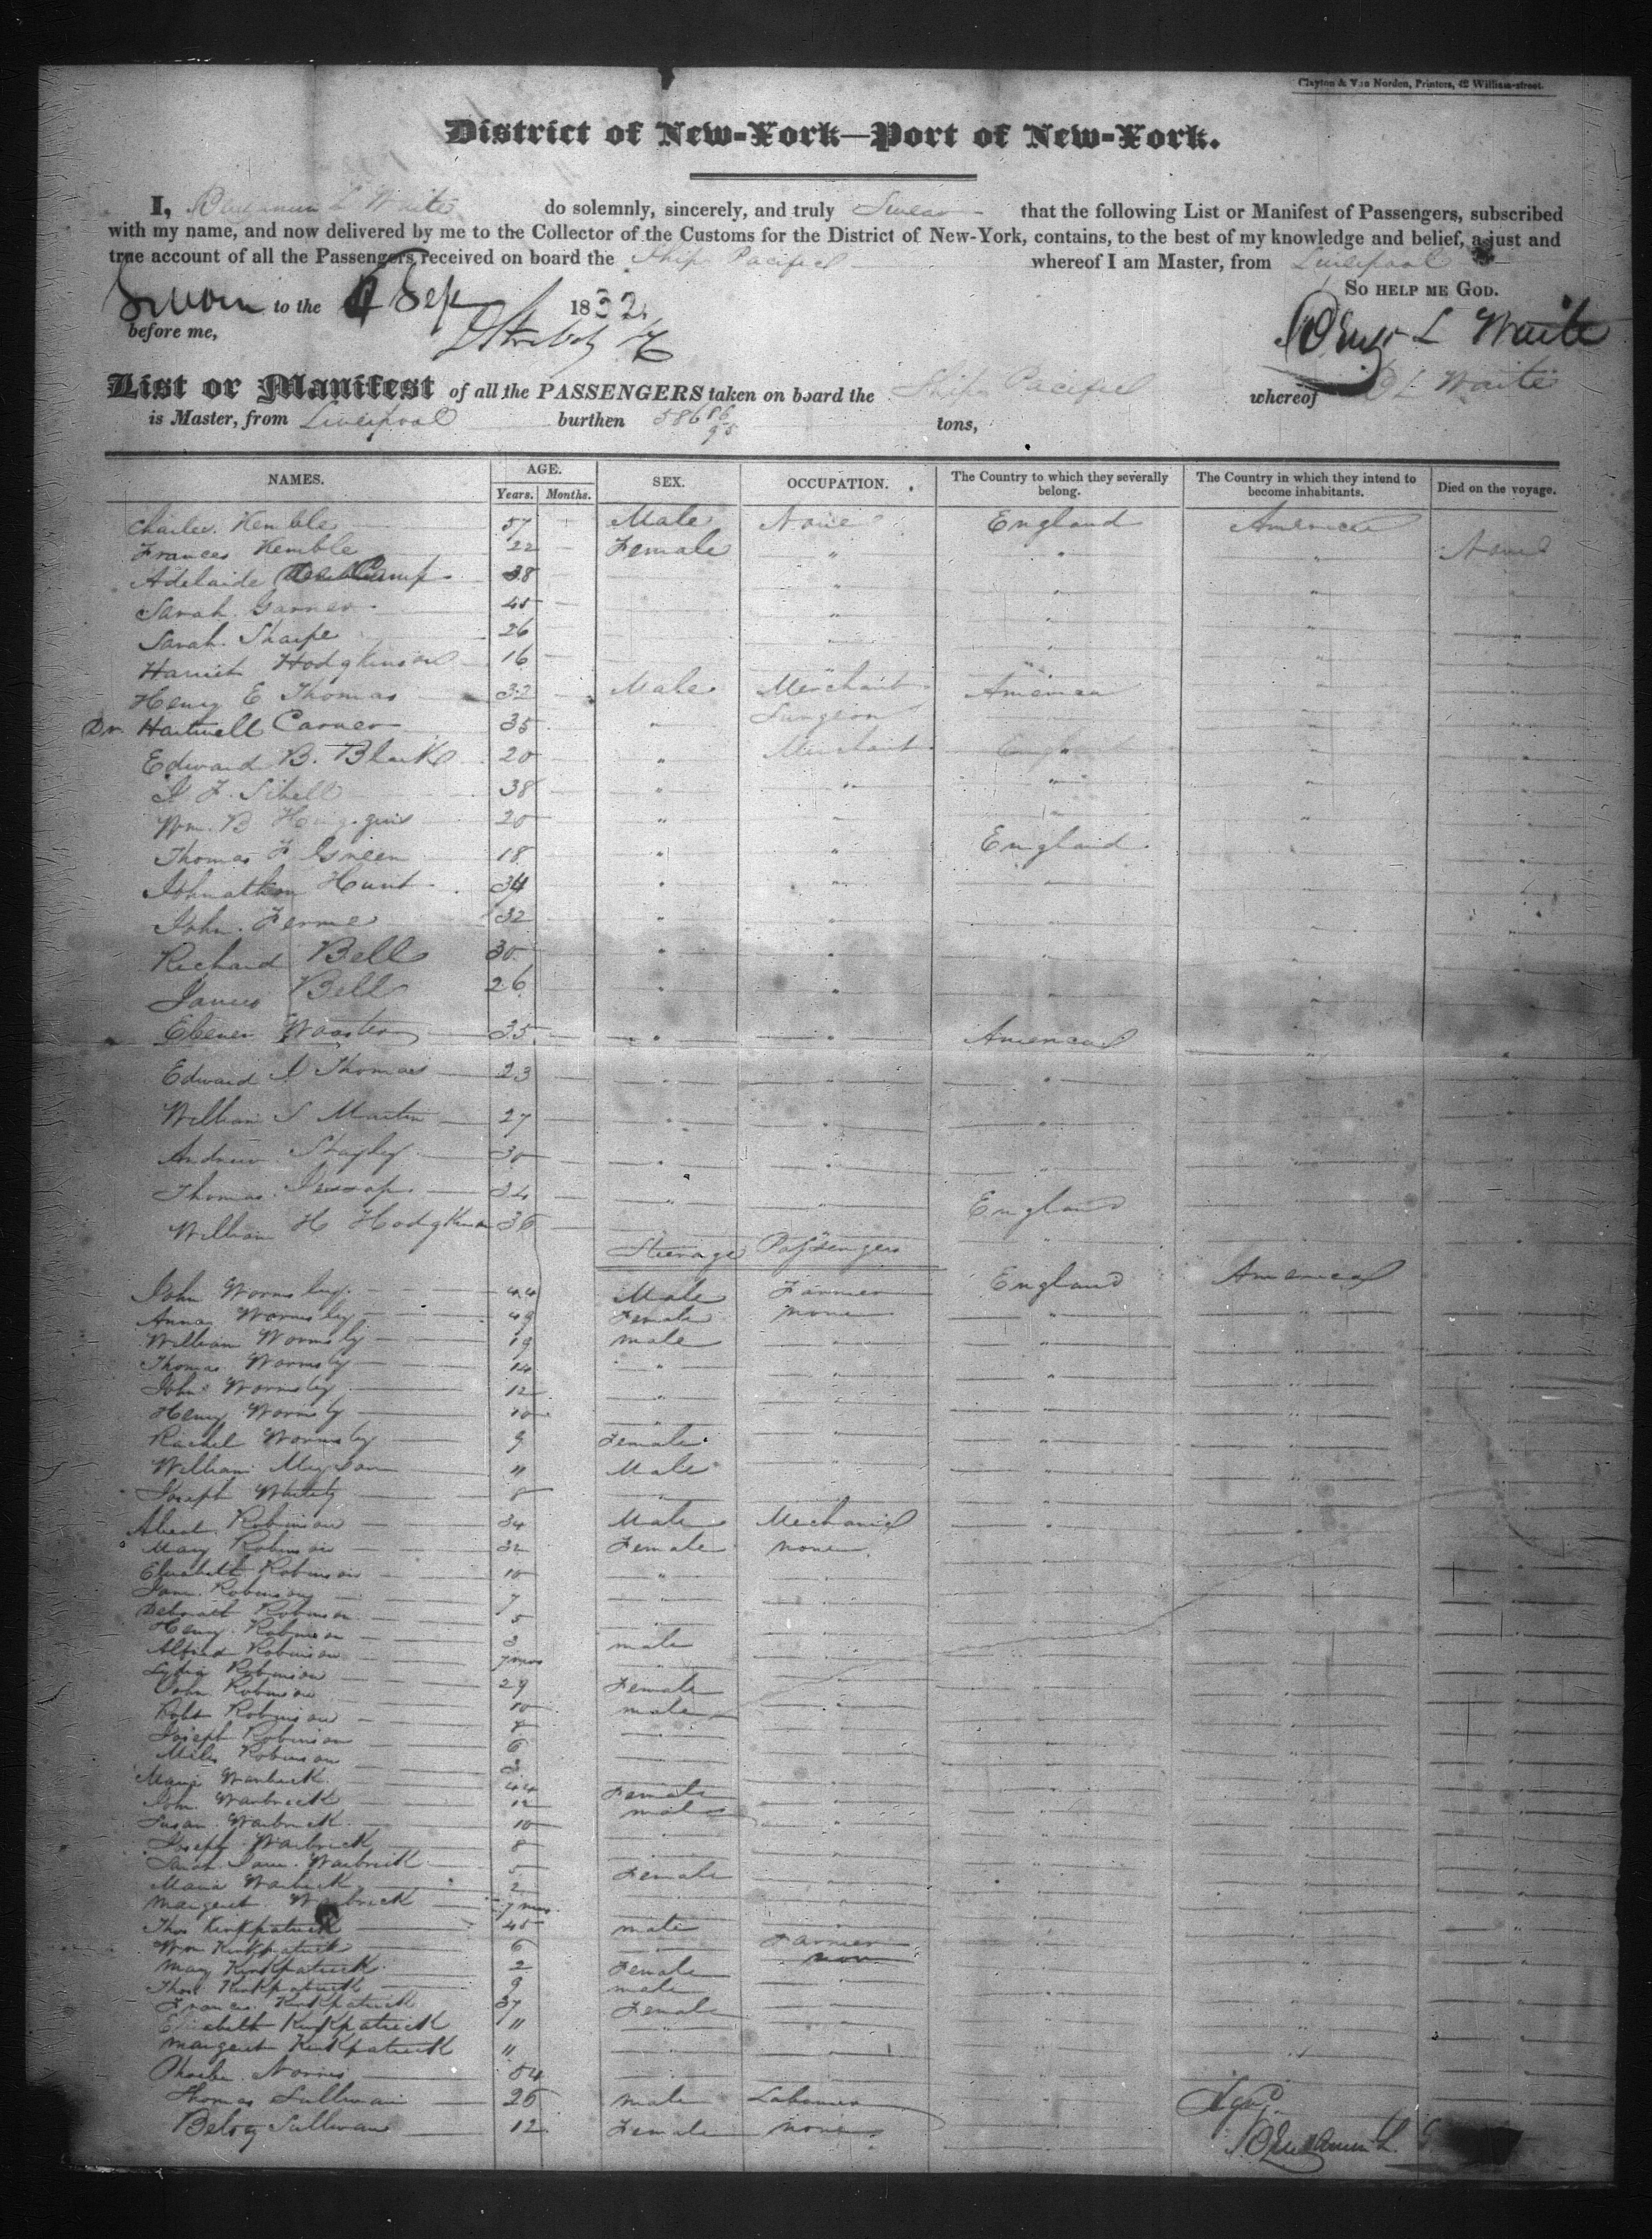 Clayton & Van Norden, Printers, 42 William-street.
District of New-York—Port of New-York.
I, Benjamin L Waite do solemnly, sincerely, and truly Swear that the following List or Manifest of Passengers, subscribed
with my name, and now delivered by me to the Collector of the Customs for the District of New-York, contains, to the best of my knowledge and belief, a just and
true account of all the Passengers received on board the Ship Pacific whereof I am Master, from Liverpool
SO HELP ME GOD.
Sworn to the 4 Sep 1832.
before me,
Benj L Waite
List or Manifest of all the PASSENGERS taken on board the Ship Pacific whereof B L Waite
is Master, from Liverpool burthen 586 86/95 tons,
NAMES. AGE. Years. Months. SEX. OCCUPATION. The Country to which they severally belong. The Country in which they intend to become inhabitants. Died on the voyage.
Charles Kemble 57 Male None England America
Frances Kemble 22 Female " " " None
Adelaide DeCamp 38 " " " "
Sarah 45 " " " "
Sarah Sharpe 26 " " " "
Harriet Hodgkinson 16 " " " "
Henry E Thomas 32 Male Merchant America " "
Dr Hartwell Carver 35 " Surgeon " " "
Edward B. Black 20 " Merchant " "
38 " " " " "
Wm B 20 " " " " "
Thomas F Green 18 " " England " "
Johnathan Hunt 34 " " " " "
John 32 " " " " "
Richard Bell 30 " " " " "
James Bell 26 " " " " "
Ebener 35 " " America " "
Edward I Thomas 23 " " " " "
William S Martin 27 " " " " "
Andrew Stayley 30 " " " " "
Thomas Jessop 34 " " England " "
William H Hodgkinson 36 " " " "
Steerage Passengers
John Wormsley 44 Male Farmer England America
Anna Wormsley 49 Female none " " "
William Wormsly 19 male " " " "
Thomas Wormsly 14 " " " " "
John Wormsley 12 " " " " "
Henry Wormsly 10 " " " " "
Rachel Wormsley 9 Female " " " "
William 11 Male " " " "
Joseph 8 " " " " "
Robinson 34 Male Mechanic " " "
Mary Robinson 32 Female none " " "
Elizabeth Robinson 10 " " " " "
Jane Robinson 7 " " " " "
Deborah Robinson 5 " " " " "
Henry Robinson 3 male " " " "
Alfred Robinson 7 mos " " " " "
Lydia Robinson 29 Female " " " "
John Robinson 10 male " " " "
Robt Robinson 8 " " " " "
Joseph Robinson 6 " " " " "
Miles Robinson 3 " " " " "
Warbrick 44 Female " " " "
John Warbrick 12 male " " " "
Susan Warbrick 10 " " " " "
Joseph Warbrick 8 " " " " "
Sarah Jane Warbrick 5 Female " " " "
Maria Warbrick 2 " " " " "
Margaret Warbrick 7 mos " " " " "
Thos Kirkpatrick 45 male Farmer " " "
Wm Kirkpatrick 6 " none " " "
Mary Kirkpatrick 2 Female " " " "
Thos Kirkpatrick 9 male " " " "
Frances Kirkpatrick 37 Female " " " "
Elizabeth Kirkpatrick 11 " " " " "
Margaret Kirkpatrick 11 " " " " "
Phoebe Norris 54 " " " "
Thomas Sullivan 26 male Labourer "
Betsy Sullivan 12 Female none "
Benjamin L.